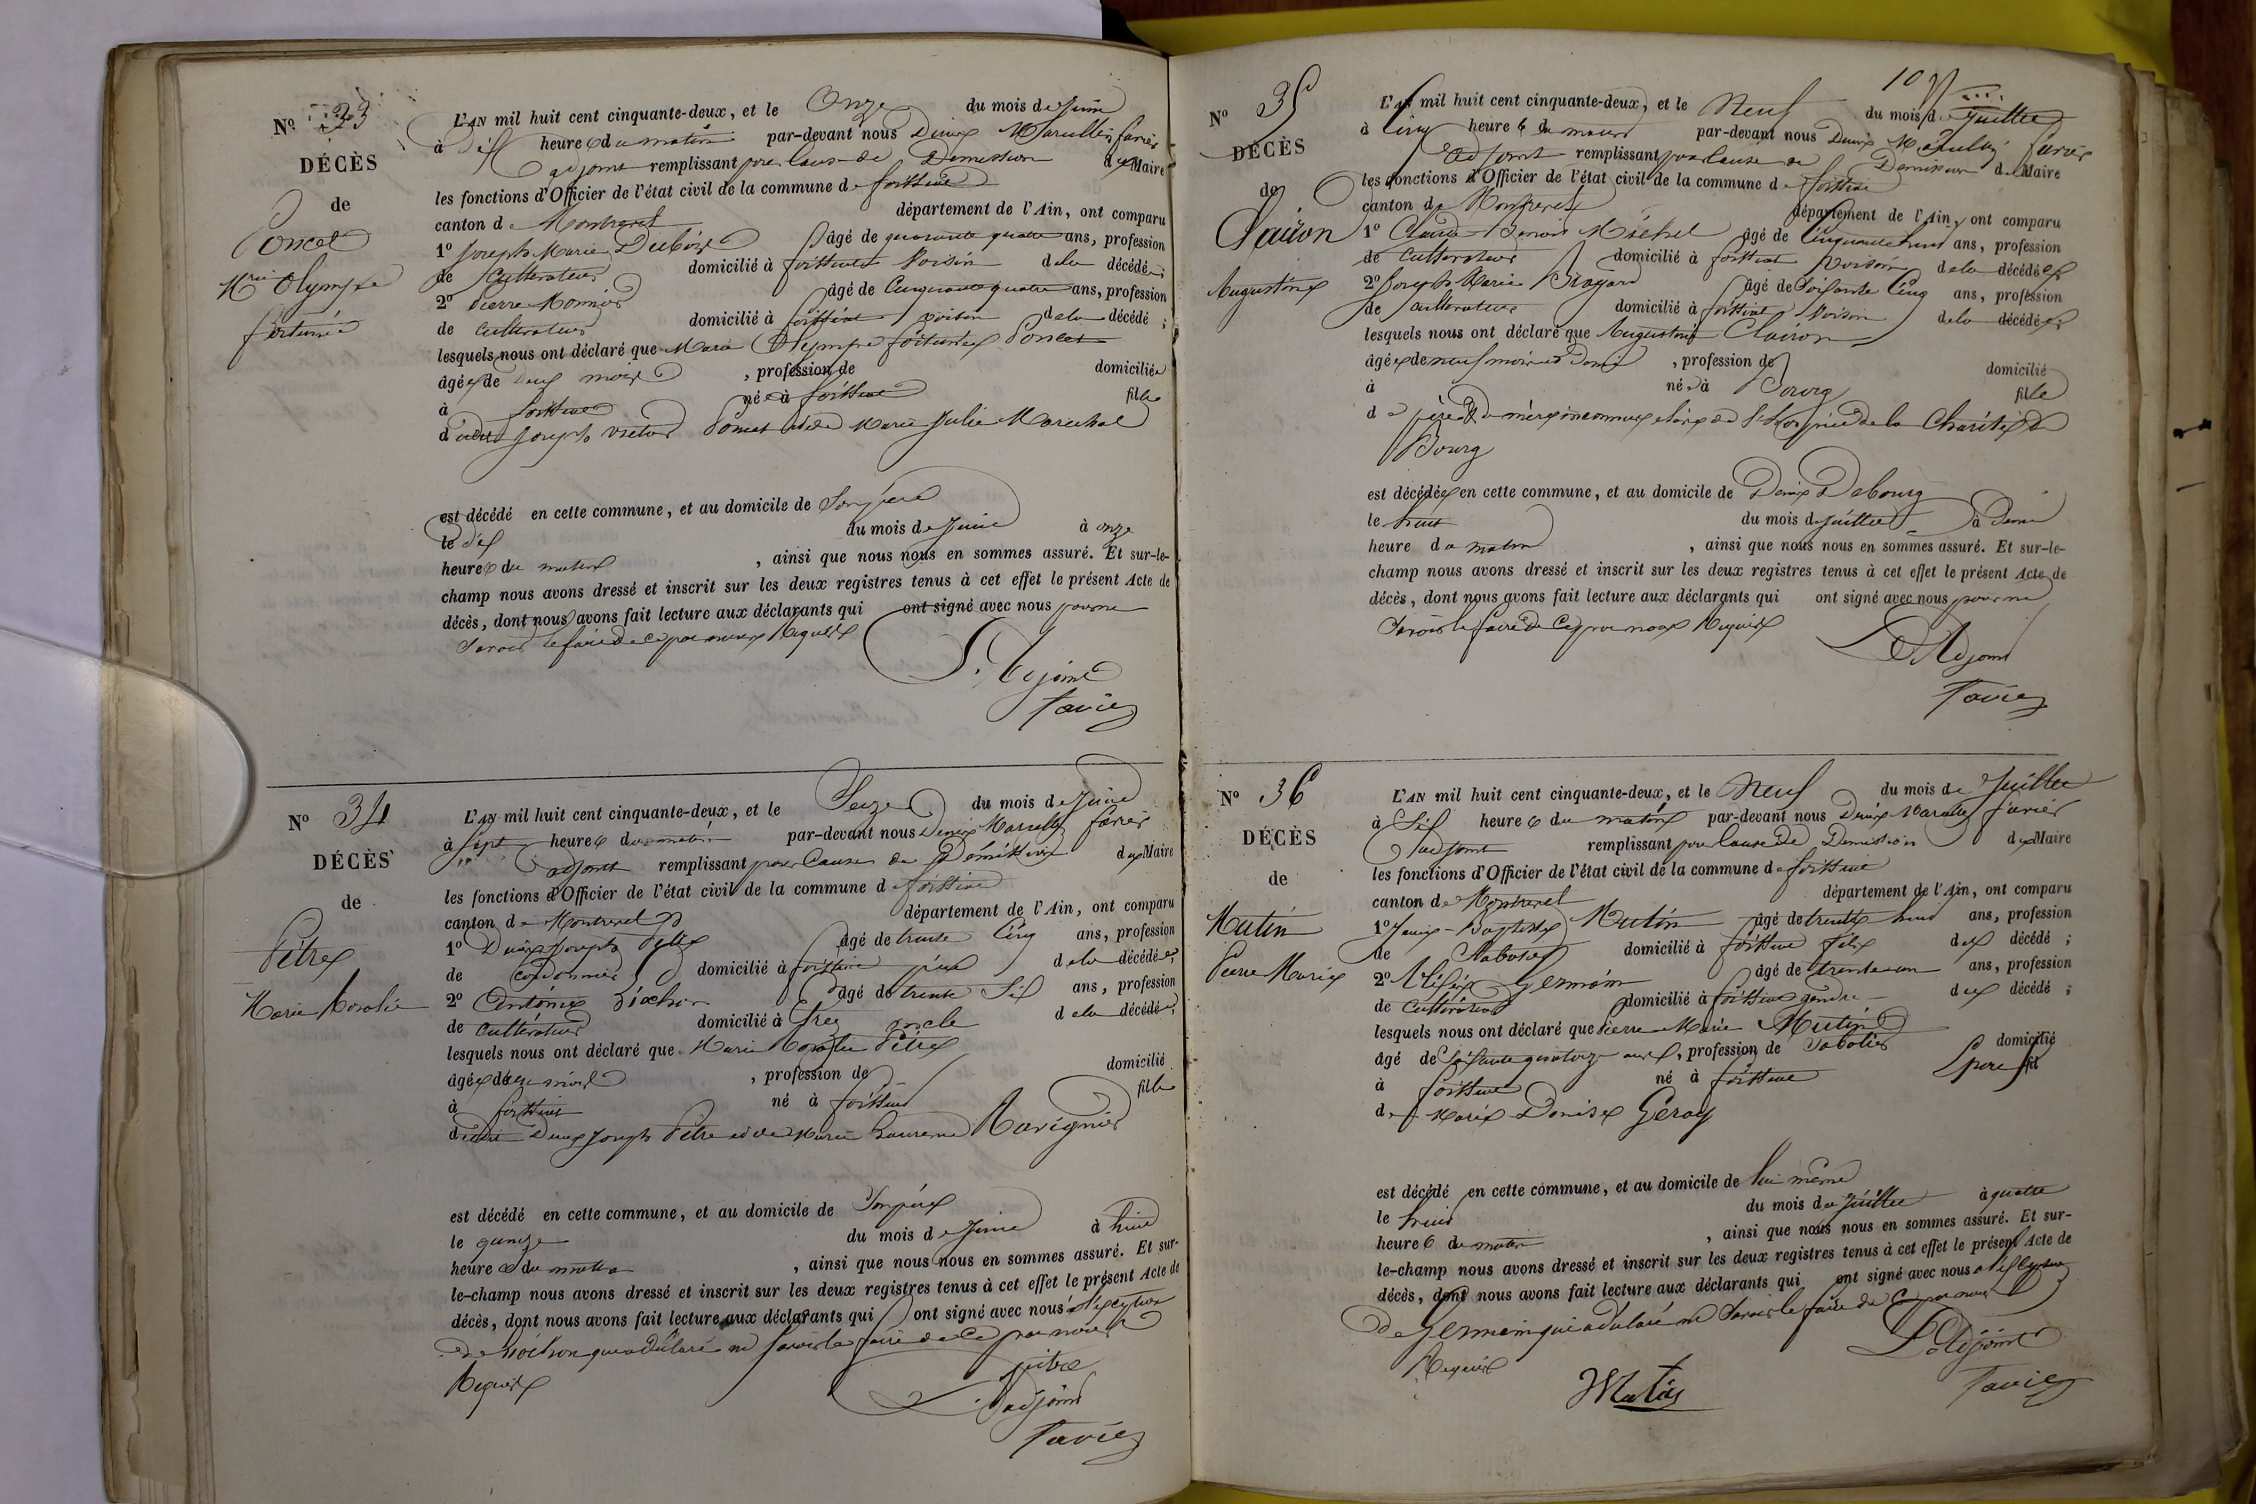 Nº 33
DÉCÈS
de
Poncet
Mie Olympe
fortunée
L'AN mil huit cent cinquante-deux, et le Onze du mois de Juin
à dix heures du matin par-devant nous Denis Marcellin favier
adjoint remplissant pour cause de Demission du Maire
les fonctions d'Officier de l'état civil de la commune de foissiat
canton de Montrevel département de l'Ain, ont comparu
1º Joseph Marie Dubois âgé de quarante quatre ans, profession
de Cultivateur domicilié à foissiat Voisin de la décédée;
2º Pierre Monnier âgé de Cinquante quatre ans, profession
de Cultivateur domicilié à foissiat voisin de la décédé;
lesquels nous ont déclaré que Marie Olympe fortunée Poncet
âgée de deux mois, profession de domiciliée
à foissiat née à foissiat fille
de Joseph victor Poncet et de Marie Julie Marechal
est décédé en cette commune, et au domicile de Son père
le dix du mois de Juin à onze
heures du matin, ainsi que nous nous en sommes assuré. Et sur-le-
champ nous avons dressé et inscrit sur les deux registres tenus à cet effet le présent Acte de
décès, dont nous avons fait lecture aux déclarants qui ont signé avec nous pour ne
Savoir le faire de ce par nous Requis
L'Adjoint
Favier
Nº 34
DÉCÈS
de
Pitre
Marie Rosalie
L'AN mil huit cent cinquante-deux, et le Seize du mois de Juin
à Sept heures du matin par-devant nous Denis Marcellin favier
adjoint remplissant pour Cause de Démission du Maire
les fonctions d'Officier de l'état civil de la commune de foissiat
canton de Montrevel département de l'Ain, ont comparu
1º Denis Joseph Pitre âgé de trente Cinq ans, profession
de Cordonnier domicilié à foissiat père de la décédée;
2º Antoine âgé de trente Six ans, profession
de Cultivateur domicilié à oncle de la décédée;
lesquels nous ont déclaré que Marie Rosalie Pitre
âgée de mois, profession de domicilié
à foissiat né à foissiat fille
dudit Denis Joseph Pitre et de Marie Laurence Ravignier
est décédé en cette commune, et au domicile de Son père
le quinze du mois de Juin à huit
heures du matin, ainsi que nous nous en sommes assuré. Et sur-
le-champ nous avons dressé et inscrit sur les deux registres tenus à cet effet le présent Acte de
décès, dont nous avons fait lecture aux déclarants qui ont signé avec nous à l'exception
de qui a déclaré ne savoir le faire de ce par nous
Requis
pitre
L'adjoint
Favier
10
Nº 35
DÉCÈS
de
Clairon
Augustine
L'AN mil huit cent cinquante-deux, et le Neuf du mois de Juillet
à Cinq heures du matin par-devant nous Denis Marcellin favier
adjoint remplissant pour Cause de Demission du Maire
les fonctions d'Officier de l'état civil de la commune de foissiat
canton de Montrevel département de l'Ain, ont comparu
1º Claude Denis Michel âgé de Cinquante huit ans, profession
de Cultivateur domicilié à foissiat voisin de la décédée;
2º Joseph Marie Broyard âgé de Soixante Cinq ans, profession
de cultivateur domicilié à foissiat Voisin de la décédée;
lesquels nous ont déclaré que Augustine Clairon
âgée de neuf mois et demi, profession de domicilié
à né à Bourg fille
de père et de mère inconnus élève de l'hospice de la Charité de
Bourg
est décédée en cette commune, et au domicile de Denis Debourg
le huit du mois de Juillet à Demi
heure du matin, ainsi que nous nous en sommes assuré. Et sur-le-
champ nous avons dressé et inscrit sur les deux registres tenus à cet effet le présent Acte de
décès, dont nous avons fait lecture aux déclarants qui ont signé avec nous pour ne
Savoir le faire de Ce par nous Requis
L'Adjoint
Favier
Nº 36
DÉCÈS
de
Mutin
Pierre Marie
L'AN mil huit cent cinquante-deux, et le Neuf du mois de Juillet
à Six heures du matin par-devant nous Denis Marcellin favier
adjoint remplissant pour Cause de Demission du Maire
les fonctions d'Officier de l'état civil de la commune de foissiat
canton de Montrevel département de l'Ain, ont comparu
1º Baptiste Mutin âgé de trente huit ans, profession
de Sabotier domicilié à foissiat fils du décédé;
2º Germain âgé de trente un ans, profession
de Cultivateur domicilié à foissiat gendre du décédé;
lesquels nous ont déclaré que Pierre Marie Mutin
âgé de Soixante quatorze ans, profession de Sabotier domicilié
à foissiat né à foissiat
de Marie Denise Geray
est décédé en cette commune, et au domicile de lui même
le huit du mois de Juillet à quatre
heures du matin, ainsi que nous nous en sommes assuré. Et sur-
le-champ nous avons dressé et inscrit sur les deux registres tenus à cet effet le présent Acte de
décès, dont nous avons fait lecture aux déclarants qui ont signé avec nous à l'exception
de Germain qui a déclaré ne Savoir le faire de Ce par nous
Requis
L'Adjoint
Mutin
Favier